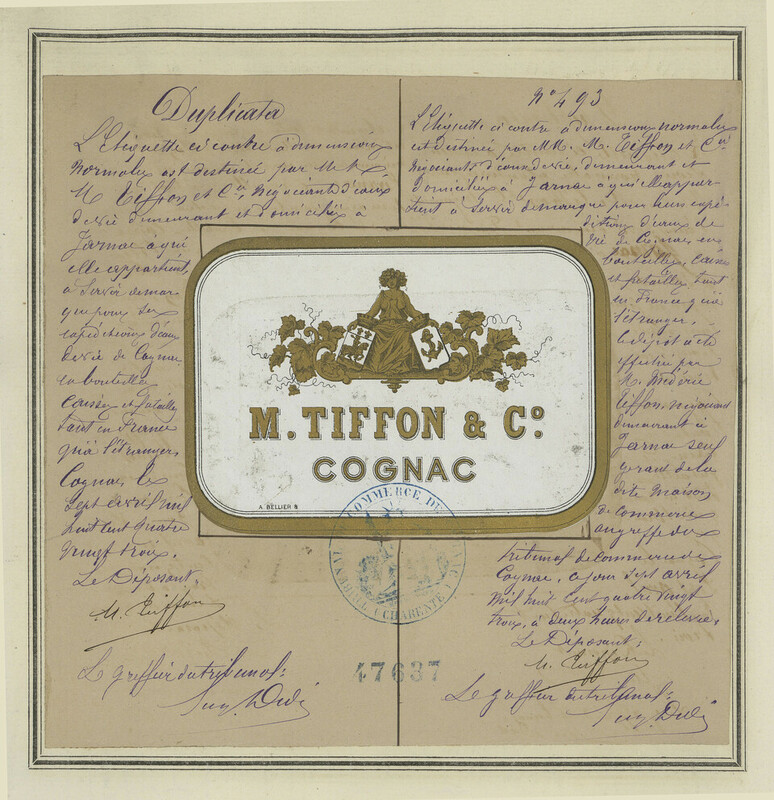 Duplicata
L'Etiquette ci contre à dimensions
normales est destinée par MM.
M Tiffon et Cie, négociants d'eaux
de vie demeurant et domiciliés à
Jarnac à qui
elle appartient,
à servir de mar-
que pour ses
expéditions d'eau
de vie de Cognac
en bouteilles
caisses et futailles
tant en France
qu'à l'étranger,
Cognac, le
sept avril mil
huit cent quatre
vingt trois.
Le Déposant,
M. Tiffon
Le greffier du tribunal:
No 493
L'Etiquette ci contre à dimensions normales
est destinée par MM. M. Tiffon et Cie
négociants d'eaux de vie, demeurant et
domiciliés à Jarnac à qui elle appar-
tient à servir de marque pour leurs expé-
ditions d'eaux de
vie de Cognac, en
bouteilles, caisses
et futailles, tant
en France qu'à
l'étranger.
Le dépôt a été
effectué par
M. Médéric
Tiffon, négociant
demeurant à
Jarnac seul
gérant de la
dite maison
de commerce
au greffe du
tribunal de commerce de
Cognac, ce jour sept avril
mil huit cent quatre vingt
trois, à deux heures de relevée.
Le Déposant:
M. Tiffon
Le greffier du tribunal:
M. TIFFON & Co.
COGNAC
A. BELLIER &
COMMERCE DE
CHARENTE
47637